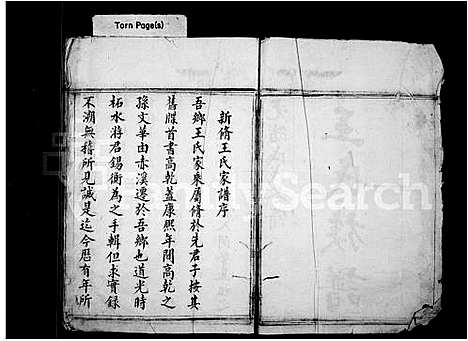 Torn Page(s)
新脩王氏家譜序
吾鄉王氏家乘屬脩於先君子按其
舊牒首書高乾蓋康熙年間高乾之
孫文華由赤溪遷於吾鄉也道光時
柘水蔣君錫衡為之手輯但求實錄
不溯無稽所見誠是迄今曆有年所
Search